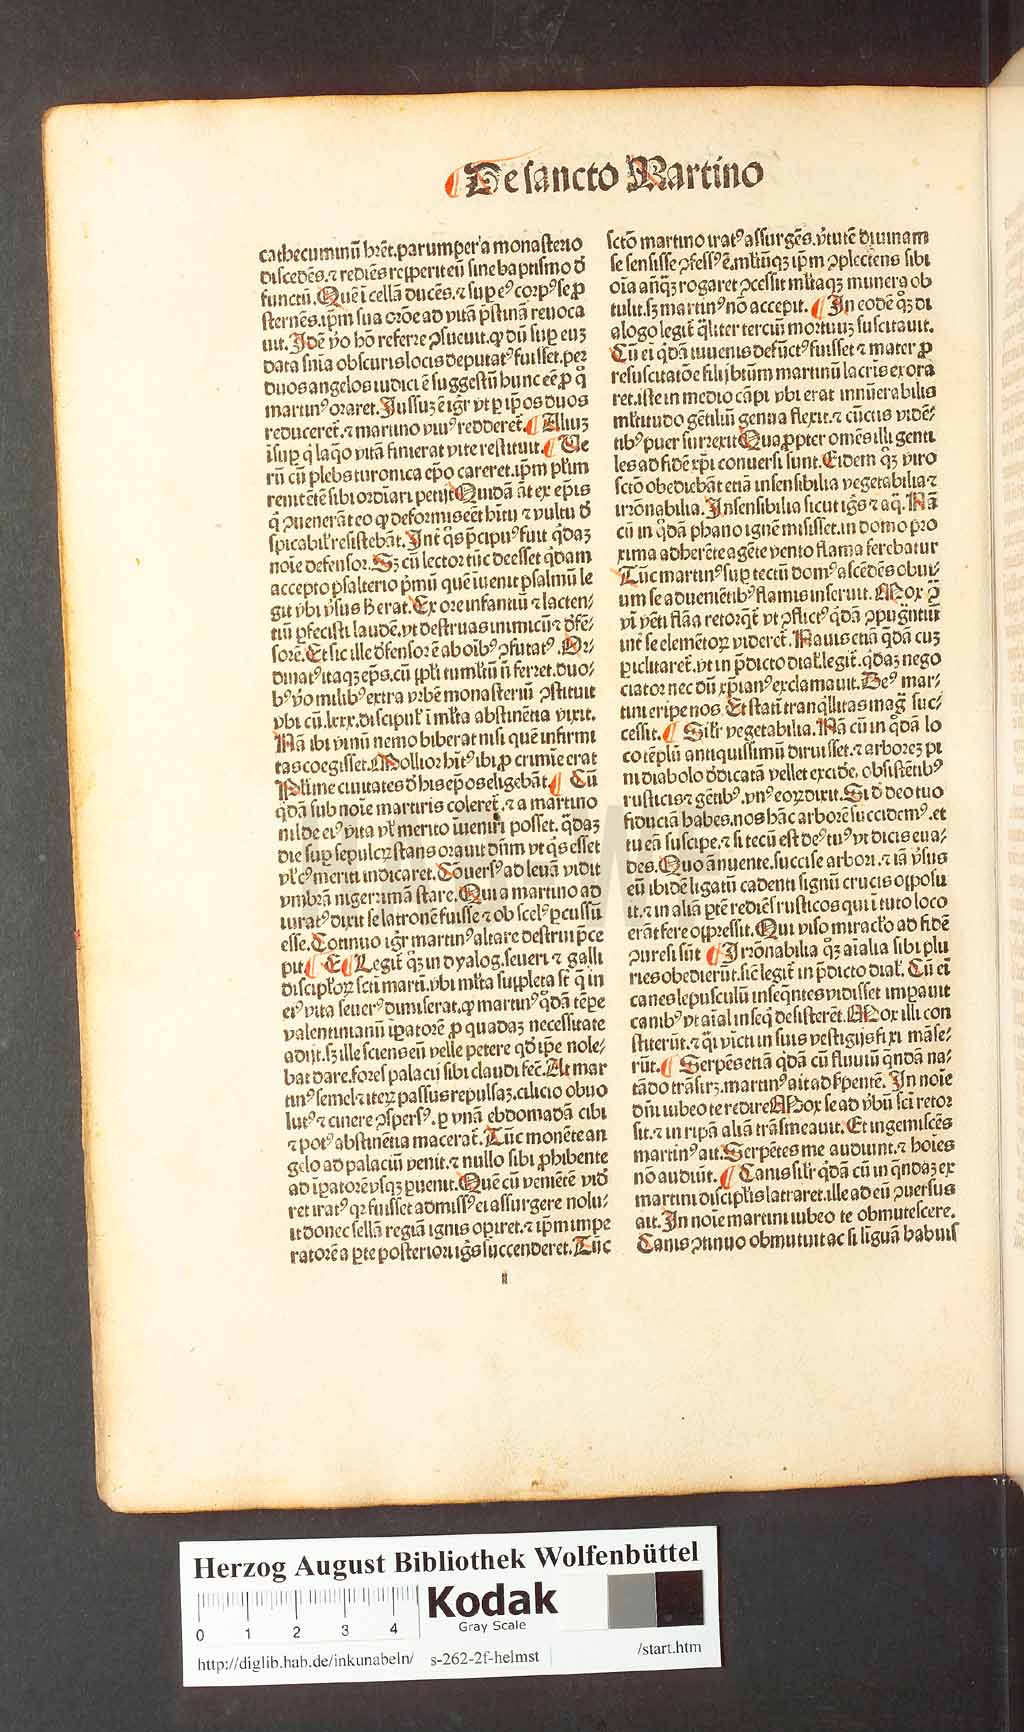 ¶ De sancto Martino
cathecuminū hr̄et. parumper a monasterio
discedēs. ⁊ rediēs repperit eū sine baptismo d̄
functū. Quē ī cellā ducēs. ⁊ sup eꝰ corpꝰ se ꝓ
sternēs. ipm̄ sua or̄oe ad vitā pristinā reuoca
uit. Idē v̄o h̄o referre ꝯsueuit. ꝙ dū sup euꝫ
data snīa obscuris locis deputatꝰ fuisset. per
duos angelos iudici ē suggestū hunc eē ꝓ q̊
martinꝰ oraret. Iussuꝫ ē igr̄ vt ꝑ ip̄os duos
reduceret᷑. ⁊ martino viuꝰ redderet᷑. ¶ Aliuꝫ
īsup q̇ laq̄o vitā finierat vite restituit. ¶ Ue
rū cū plebs turonica ep̄o careret. ipm̄ plr̄um
renitētē sibi ordīari petijt. Quidā āt ex ep̄is
q̇ ꝯuenerāt eo ꝙ deformis eēt h̄itu ⁊ vultu d̄
spicabil̓ resistebāt. Int̓ q̊s p̄cipuꝰ fuit q̇daꝫ
noīe defensor. Sꝫ cū lector tūc deesset q̇dam
accepto psalterio p̄mū quē īuenit psalmū le
git vbi v̓sus h̓ erat. Ex ore infantiū ⁊ lacten⸗
tiū ꝑfecisti laudē. vt destruas inimicū ⁊ d̓fē⸗
sorē. Et sic ille d̓fensor ē ab oībꝰ ꝯfutatꝰ. Or⸗
dinatꝰ itaqꝫ ep̄s. cū ipl̓i tumultū n̄ ferret. duo⸗
bꝰ v̓o milibꝰ extra vrbē monasteriū ꝯstituit
vbi cū. lxxx. discipul̓ ī ml̓ta abstinētia vixit.
Nā ibi vinū nemo biberat nisi quē infirmi
tas coegisset. Mollior h̄itꝰ ibi ꝓ crimīe erat
Pl̓ime ciuitates d̓ his ep̄os eligebāt. ¶ Cū
q̇dā sub noīe martiris coleret᷑. ⁊ a martino
nil de eiꝰ vita vl̓ merito īueniri posset. q̇daꝫ
die sup sepulcꝝ stans orauit dn̄m vt q̇s esset
vl̓ cꝰ meriti indicaret. Cōuersꝰ ad leuā vidit
vmbrā nigerrimā stare. Qui a martino ad
iuratꝰ dixit se latronē fuisse ⁊ ob scelꝰ ꝑcussū
esse. Cotinuo igr̄ martinꝰ altare destrui p̄ce
pit ¶ E ¶ Legit᷑ qꝫ in dyalog. seueri ⁊ galli
discipl̓oꝝ scti marti. vbi ml̓ta suppleta st̄ q̄ in
eiꝰ vita seuerꝰ dimiserat. ꝙ martinꝰ q̇dā tēpe
valentinianū ip̄atorē ꝓ quadaꝫ necessitate
adijt. sꝫ ille sciens eū velle petere qd̓ ip̄e nole⸗
bat dare. fores palacij sibi claudi fec̄. At mar
tinꝰ semel ⁊ iteꝝ passus repulsaꝫ. cilicio obuo
lutꝰ ⁊ cinere ꝯspersꝰ. ꝑ vnā ebdomadā cibi
⁊ potꝰ abstinētia macerat᷑. Tūc monēte an
gelo ad palaciū venit. ⁊ nullo sibi ꝓhibente
ad ip̄atorē vsqꝫ ꝑuenit. Quē cū veniētē vid̓
ret iratꝰ qꝫ fuisset admissꝰ ei assurgere nolu⸗
it donec sellā regiā ignis opiret. ⁊ ipm̄ impe
ratorē a ꝑte posteriori igīs succenderet. Tūc
sctō martino iratꝰ assurgēs. v̓tutē diuinam
se sensisse ꝯfessꝰ ē. ml̓tūqꝫ ipm̄ ꝯplectens sibi
oīa an̄qꝫ rogaret ꝯcessit ml̓taqꝫ munera ob
tulit. sꝫ martinꝰ nō accepit. ¶ In eodē qꝫ di
alogo legit᷑ q̄liter terciū mortuuꝫ suscitauit.
Cū ei q̇dā iuuenis defūctꝰ fuisset ⁊ mater ꝓ
resuscitatōe filij btm̄ martinū lacrīs exora
ret. iste in medio cāpi vbi erat innūerabilis
ml̓titudo gētiliū genua flexit. ⁊ cūctis vidē⸗
tibꝰ puer surrexit. Quapropter omēs illi genti
les ad fidē xp̄i conuersi sunt. Eidem qꝫ viro
sctō obediebāt etiā insensibilia vegetabilia ⁊
irrōnabilia. Insensibilia sicut igīs ⁊ aq̄. Nā
cū in q̇dā phano ignē misisset. in domo pro
xima adherēte agēte vento flama ferebatur
Tūc martinꝰ sup tectū domꝰ ascēdēs obui⸗
um se aduenīetibꝰ flamis inseruit. Mox ꝯ̄
vī vēti flāa retorq̄t᷑ vt ꝯflictꝰ q̇dā ꝯpugn̄tiū
int̓ se elemētoꝝ videret᷑. Nauis etiā q̇dā cuꝫ
ꝑiclitaret᷑. vt in p̄dicto dial̓ legit᷑. q̇daꝫ nego
ciator nec dū xp̄ianꝰ exclamauit. Deꝰ mar⸗
tini eripe nos Et statī tranq̇llitas mag̃ suc⸗
cessit. ¶ Sil̓r vegetabilia. Nā cū in q̇dā lo
co tēplū antiquissimū diruisset. ⁊ arboreꝫ pi
ni diabolo d̓dicatā vellet excide̓. obsistētibꝰ
rusticis ⁊ gētibꝰ. vnꝰ eoꝝ dixit. Si d̓ deo tuo
fiduciā habes. nos hāc arborē succidemꝰ. et
tu eā suscipe. ⁊ si tecū est deꝰ tuꝰ vt dicis eua⸗
des. Quo ānuente. succise arbori. ⁊ iā v̓sus
eū ibidē ligatū cadenti signū crucis oppsu
it. ⁊ in aliā ꝑtē rediēs rusticos qui ī tuto loco
erāt fere oppressit. Qui viso miracl̓o ad fidē
ꝯuersi sūt ¶ Irrōnabilia qꝫ aīalia sibi plu
ries obedierūt. sic̄ legit᷑ in p̄dicto dial̓. Cū eī
canes lepusculū inseq̄ntes vidisset impauit
canibꝰ vt aīal inseq̇ desisterēt. Mox illi con
stiterūt. ⁊ q̄i victi in suis vestigijs fixi māse⸗
rūt. ¶ Serpēs etiā q̇dā cū fluuiū q̄ndā na⸗
tādo trāsirꝫ. martinꝰ ait ad s̓pentē. In noīe
dn̄i iubeo te redire. Mox se ad v̓bū sci retor
sit. ⁊ in ripā aliā trāsmeauit. Et ingemiscēs
martinꝰ ait. Serpētes me audiunt. ⁊ hoīes
nō audiūt. ¶ Canis sil̓r q̇dā cū in q̄ndaꝫ ex
martini discipl̓is latraret. ille ad eū ꝯuersus
ait. In noīe martini iubeo te obmutescere.
Canis ꝯtinuo obmutuit ac si līguā habuis
Herzog August Bibliothek Wolfenbüttel
0 1 2 3 4
Kodak
Gray Scale
http://diglib.hab.de/inkunabeln/ s-262-2f-helmst /start.htm